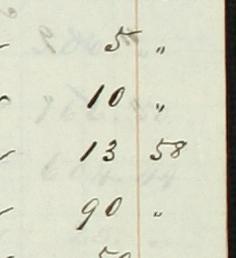 5 "
10 "
13 58
90 "